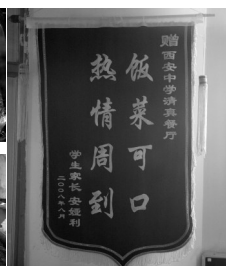 赠西安中学清真餐厅
饭菜可口
热情周到
学生家长 安继利
二〇〇八年八月